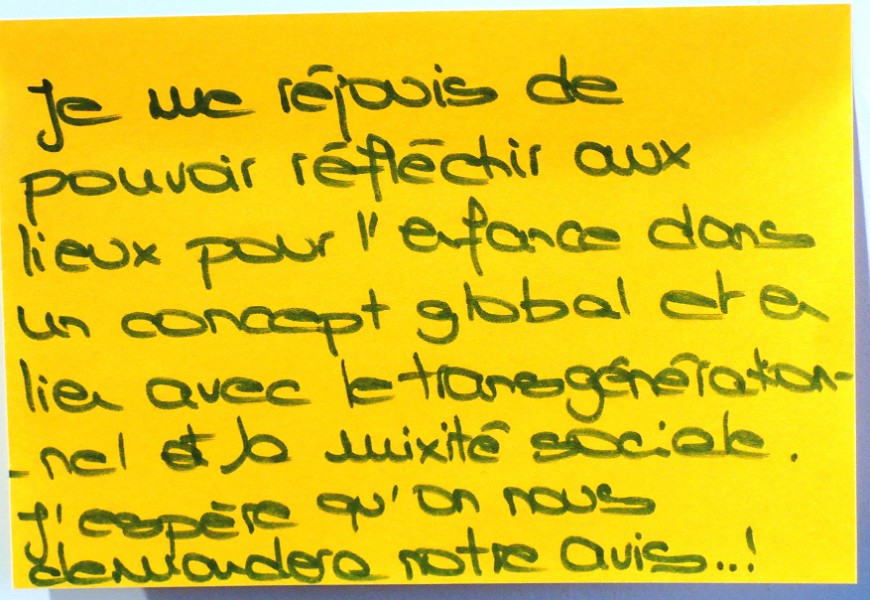 Je me réjouis de
pouvoir réfléchir aux
lieux pour l'enfance dans
un concept global et en
lien avec le transgénération-
-nel et la mixité sociale.
J'espère qu'on nous
demandera notre avis..!